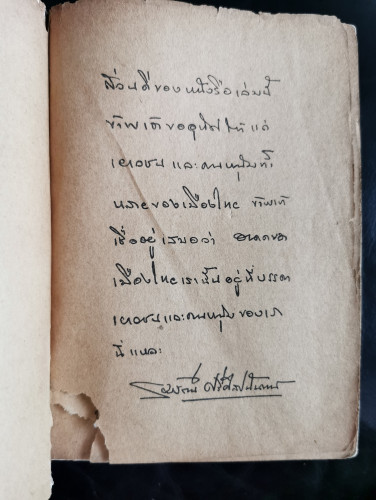 ส่วนดีของหนังสือเล่มนี้
ข้าพเจ้าขออุทิศให้แด่
เยาวชน และคนหนุ่มทั้ง
หลายของเมืองไทย ข้าพเจ้า
เชื่ออยู่เสมอว่า อนาคตของ
เมืองไทยเรานั้นอยู่ที่บรรดา
เยาวชนและคนหนุ่มของเรา
นี่แหละ